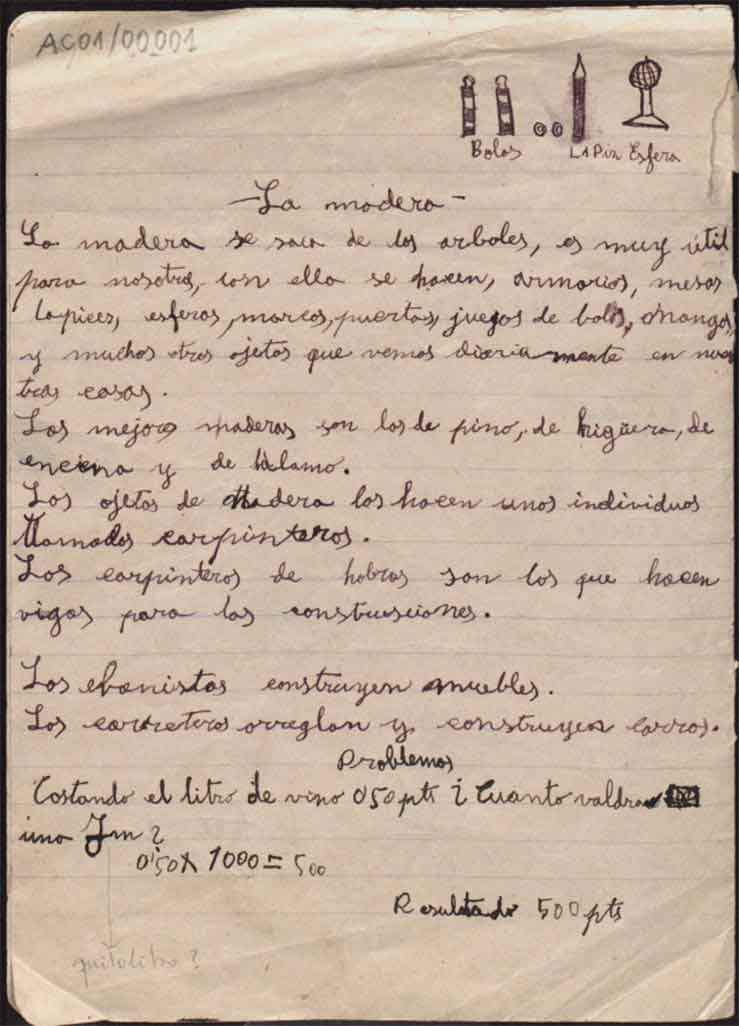 AC01/00001
Bolos LAPiz Esfera
-La madera-
La madera se saca de los arboles, es muy útil
para nosotros, con ella se hacen, armarios, mesas
lapices, esferas, marcos, puertas, juegos de bolos, mangos,
y muchos otros ojetos que vemos diariamente en nues
tras casas.
Las mejores maderas son las de pino, de higüera, de
encina y de álamo.
Los ojetos de madera los hacen unos individuos
llamados carpinteros.
Los carpinteros de hobras son los que hacen
vigas para las construsciones.
Los ebanistas construyen muebles.
Los carreteros arreglan y construyen carros.
Problemas
Costando el litro de vino 0'50 pts ¿Cuanto valdra
una ?
0'50 X 1000 = 500
Resultado 500 pts